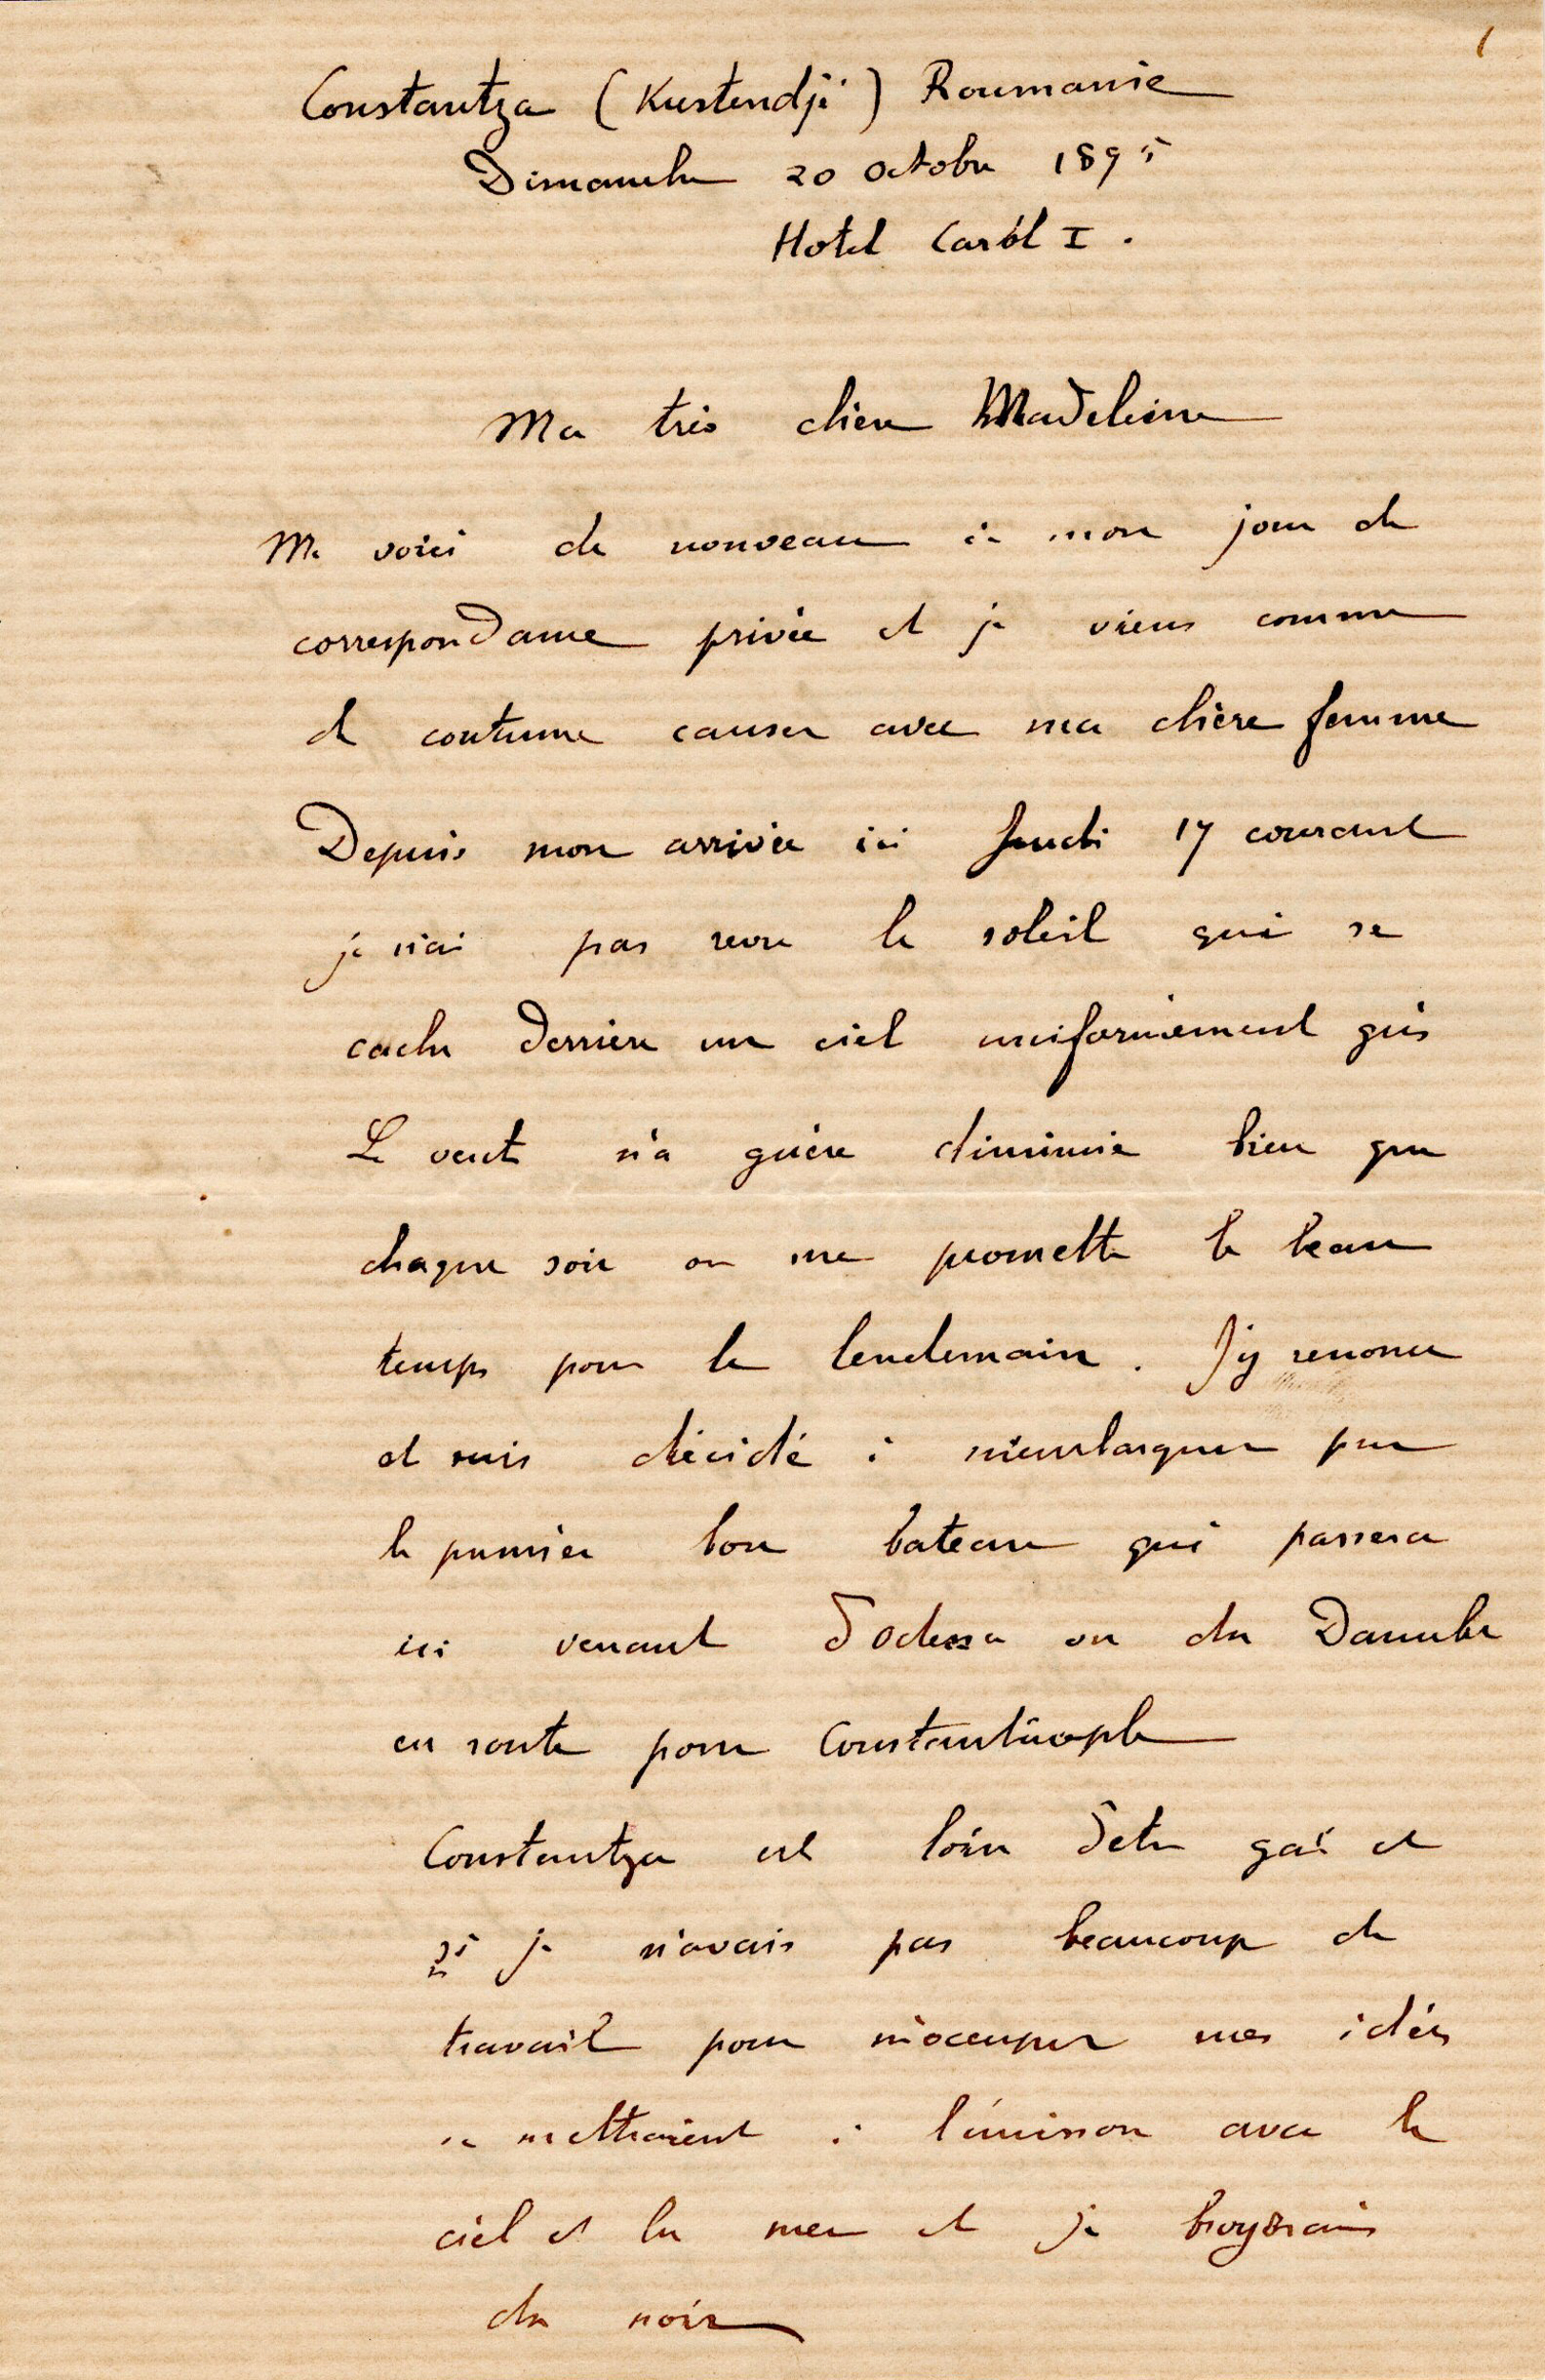 1
Constantza (Kustendjé) Roumanie
Dimanche 20 Octobre 1895
Hotel Carol I.
Ma très chère Madeleine
Me voici de nouveau à mon jour de
correspondance privée et je viens comme
de coutume causer avec ma chère femme
Depuis mon arrivée ici Jeudi 17 courant
je n'ai pas revu le soleil qui se
cache derrière un ciel uniformément gris
Le vent n'a guère diminué bien que
chaque soir on me promette le beau
temps pour le lendemain. J'y renonce
et suis décidé à m'embarquer par
le premier bon bateau qui passera
ici venant d'Odessa ou du Danube
en route pour Constantinople
Constantza est loin d'etre gai et
si je n'avais pas beaucoup de
travail pour m'occuper mes idées
se mettraient à l'unisson avec le
ciel et la mer et je broyerais
du noir